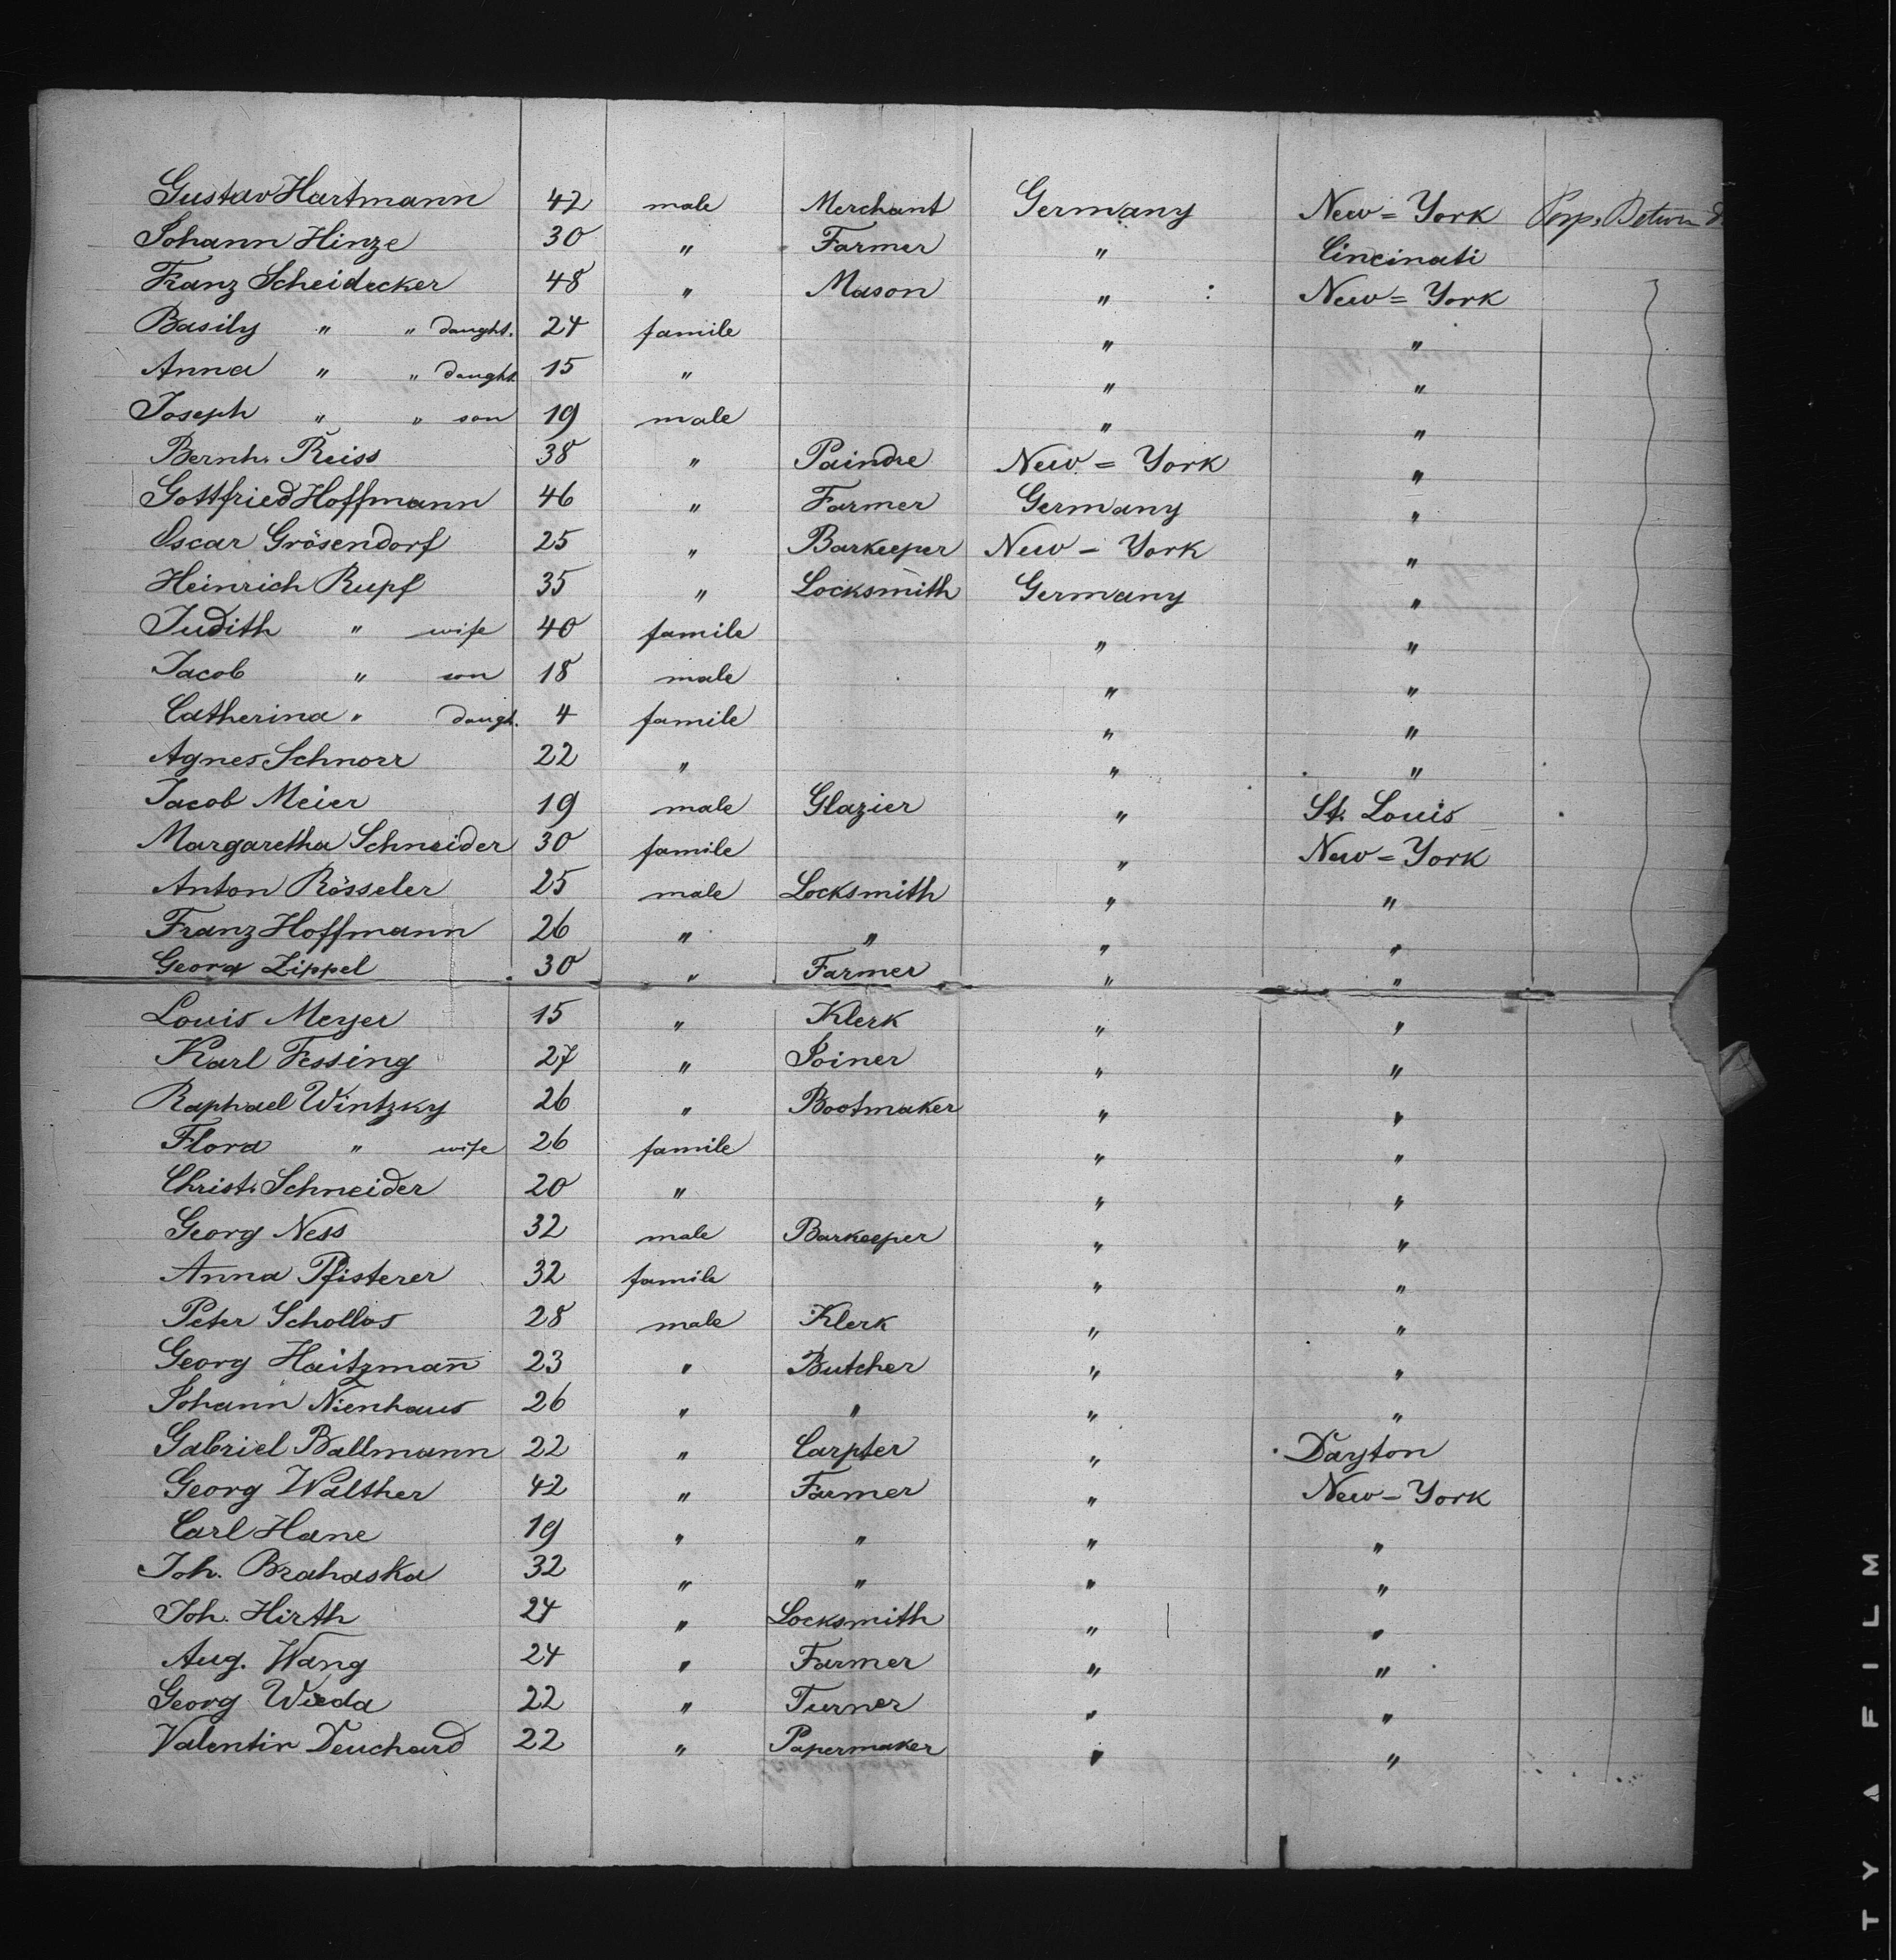 Gustav Hartmann 42 male Merchant Germany New=York
Johann Hinze 30 " Farmer " Cincinati
Franz Scheidecker 48 " Mason " : New=York
Basily " " daught. 24 famile " "
Anna " " daught. 15 " " "
Joseph " " son 19 male " "
Bernh. Reiss 38 " Paindre New=York "
Gottfried Hoffmann 46 " Farmer Germany "
Oscar Grösendorf 25 " Barkeeper New-York "
Heinrich Rupf 35 " Locksmith Germany "
Judith " wife 40 famile " "
Jacob " son 18 male " "
Catherina " daugt. 4 famile " "
Agnes Schnorr 22 " " "
Jacob Meier 19 male Glazier " St. Louis
Margaretha Schneider 30 famile " New=York
Anton Rösseler 25 male Locksmith " "
Franz Hoffmann 26 " " " "
Georg Zippel 30 " Farmer " "
Louis Meyer 15 " Klerk " "
Karl Fessing 27 " Joiner " "
Raphael Wintzky 26 " Bootmaker " "
Flora " wife 26 famile " "
Christ. Schneider 20 " " "
Georg Ness 32 male Barkeeper " "
Anna Pfisterer 32 famile " "
Peter Schollos 28 male Klerk " "
Georg Haitzmañ 23 " Butcher " "
Johann Nienhaus 26 " " " "
Gabriel Ballmann 22 " Carpter " Dayton
Georg Walther 42 " Farmer " New-York
Carl Hane 19 " " " "
Joh. Brahaska 32 " " " "
Joh. Hirth 24 " Locksmith " "
Aug. Wang 24 " Farmer " "
Georg Wieda 22 " Turner " "
Valentin Deuchard 22 " Papermaker " "
TY A FILM